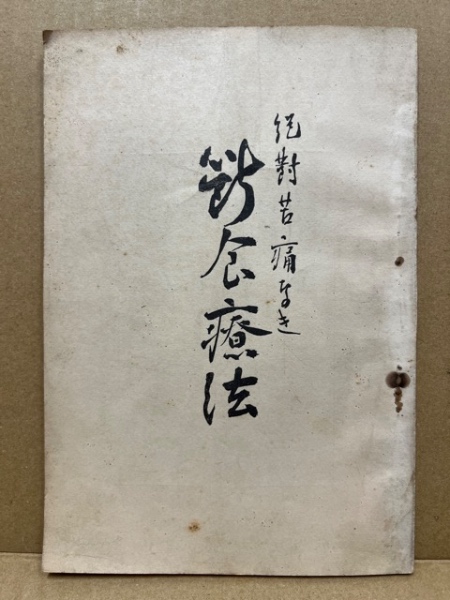 絶對苦痛なき
斷食療法